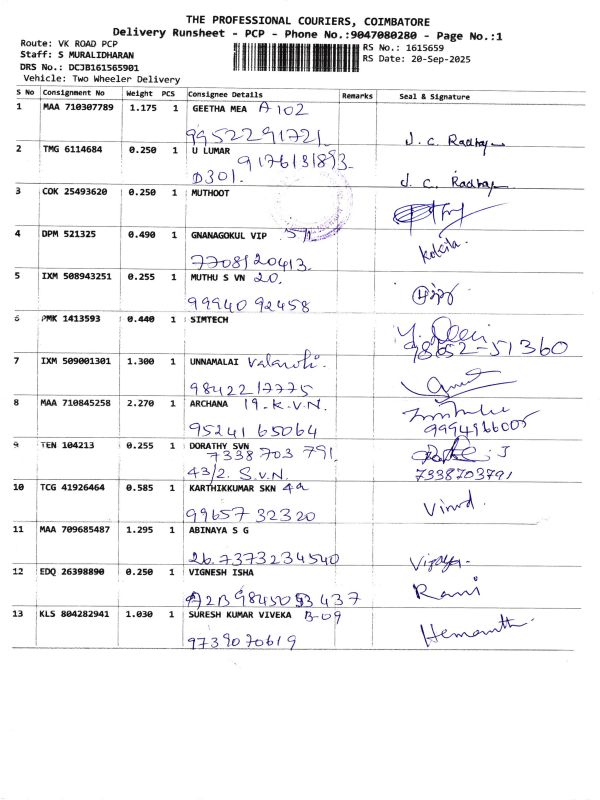 THE PROFESSIONAL COURIERS, COIMBATORE
Delivery Runsheet - PCP - Phone No.:9047080280 - Page No.:1
Route: VK ROAD PCP
Staff: S MURALIDHARAN
DRS No.: DCJB161565901
Vehicle: Two Wheeler Delivery
RS No.: 1615659
RS Date: 20-Sep-2025
S No Consignment No Weight PCS Consignee Details Remarks Seal & Signature
1 MAA 710307789 1.175 1 GEETHA MEA A 102
9952291721. J. C. Radha
2 TMG 6114684 0.250 1 U LUMAR
9176131893.
D301. J. C. Radha
3 COK 25493620 0.250 1 MUTHOOT
4 DPM 521325 0.490 1 GNANAGOKUL VIP 5/1
7708120413. Kokila.
5 IXM 508943251 0.255 1 MUTHU S VN 20.
99940 92458
6 PMK 1413593 0.440 1 SIMTECH
98652-51360
7 IXM 509001301 1.300 1 UNNAMALAI
98422 17775
8 MAA 710845258 2.270 1 ARCHANA 19-K.V.N.
95241 65064 9994966005
9 TEN 104213 0.255 1 DORATHY SVN
7338 703 791.
43/2. S.V.N. 7338703791
10 TCG 41926464 0.585 1 KARTHIKKUMAR SKN 4a
99657 32320 Vinod.
11 MAA 709685487 1.295 1 ABINAYA S G
26. 7373234540 Vijaya.
12 EDQ 26398890 0.250 1 VIGNESH ISHA
A2B 98450 93437 Rani
13 KLS 804282941 1.030 1 SURESH KUMAR VIVEKA B-09
9739070619 Hemanth.